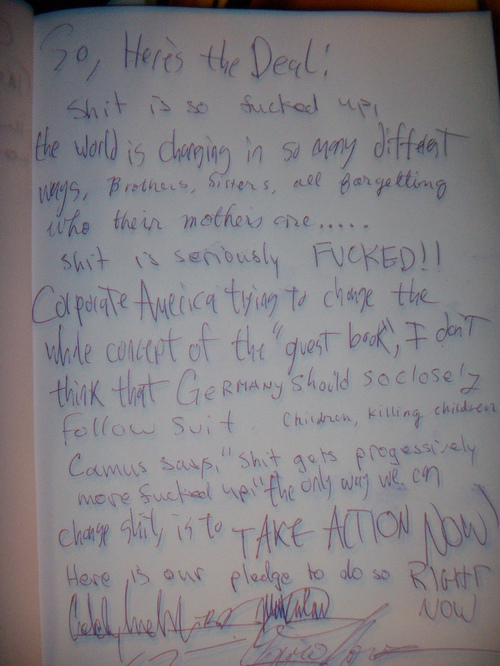 So, Here's the Deal!
shit is so fucked up,
the world is changing in so many different
ways, Brothers, Sisters, all forgetting
who their mothers are.....
shit is seriously FUCKED!!
Corporate America trying to change the
whole concept of the "guest book", I don't
think that GERMANY should so closely
follow suit. Children, killing children
Camus says, "shit gets progessively
more fucked up," the only way we can
change shit, is to TAKE ACTION NOW
Here is our pledge to do so RIGHT
NOW